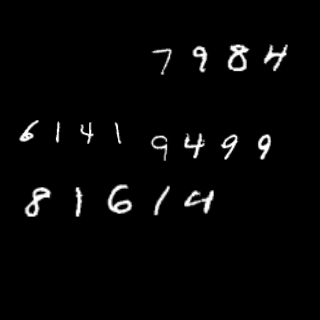 7984
6141 9499
81614